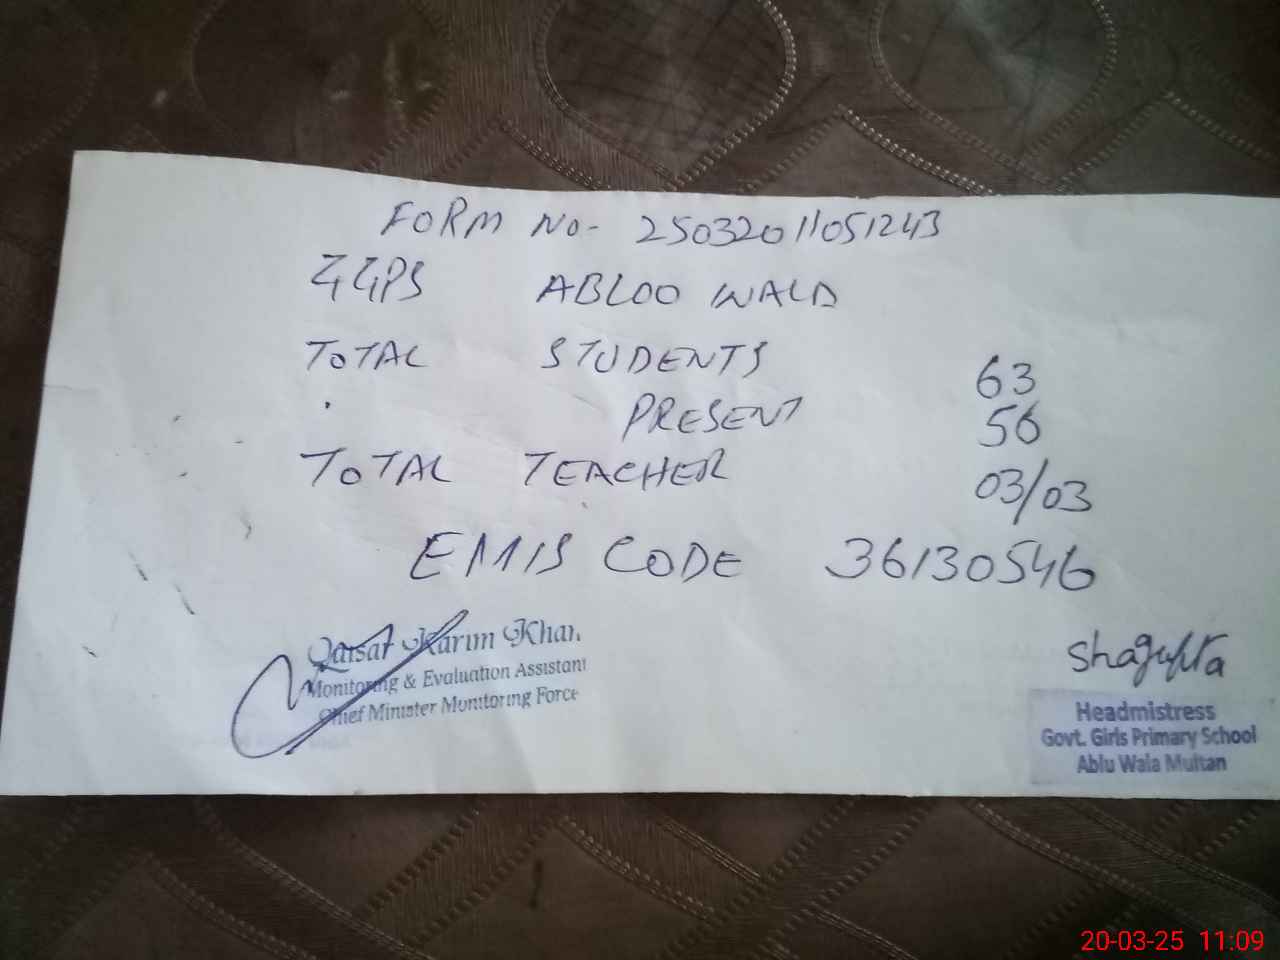 FORM No- 25032011051243
GGPS ABLOO WALA
TOTAL STUDENTS 63
PRESENT 56
TOTAL TEACHER 03/03
EMIS CODE 36130546
Qaisar Karim Khan
Monitoring & Evaluation Assistant
Chief Minister Monitoring Force
Shagufta
Headmistress
Govt. Girls Primary School
Ablu Wala Multan
20-03-25 11:09